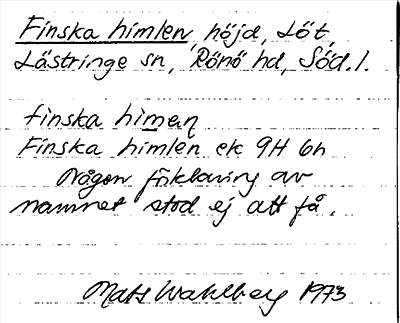 Finska himlen, höjd, Löt,
Lästringe sn, Rönö hd, Söd.l.
finska himeɳ
Finska himlen ek 9H 6h
Någon förklaring av
namnet stod ej att få.
Mats Wahlberg 1973